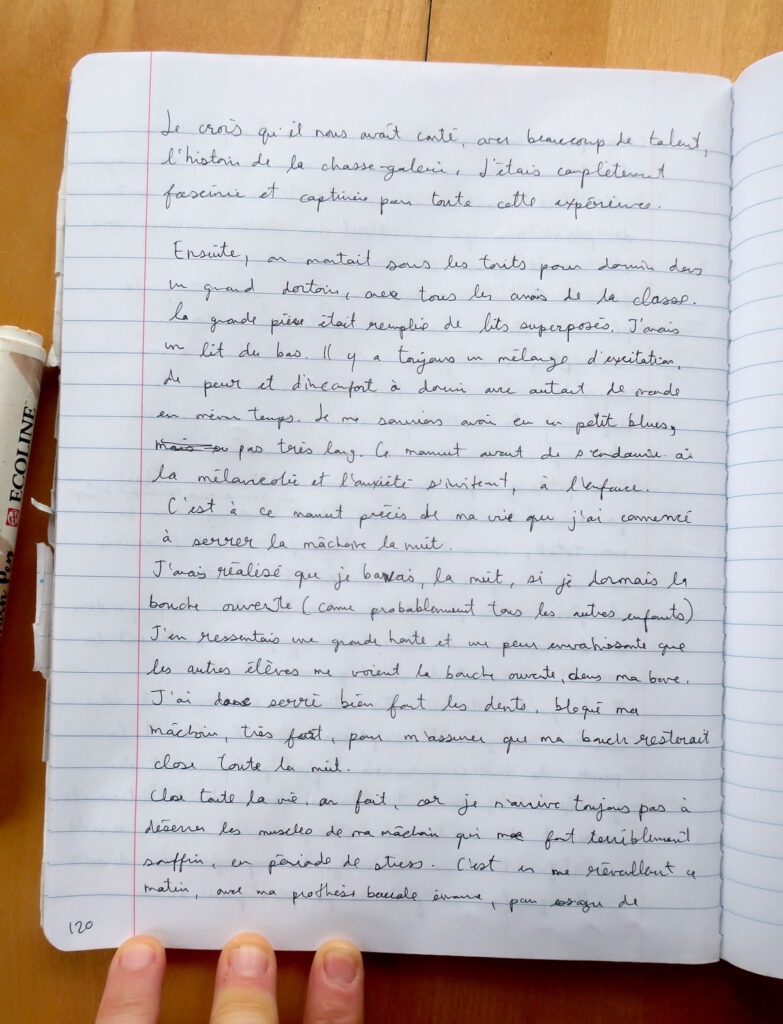 Je crois qu'il nous avait conté, avec beaucoup de talent,
l'histoire de la chasse-galerie. J'étais complètement
fascinée et captivée par toute cette expérience.
Ensuite, on montait sous les toits pour dormir dans
un grand dortoir, avec tous les amis de la classe.
La grande pièce était remplie de lits superposés. J'avais
un lit du bas. Il y a toujours un mélange d'excitation,
de peur et d'inconfort à dormir avec autant de monde
en même temps. Je me souviens avoir eu un petit blues,
mais pas très long. Ce moment avant de s'endormir où
la mélancolie et l'anxiété s'invitent, à l'enfance.
C'est à ce moment précis de ma vie que j'ai commencé
à serrer la mâchoire la nuit.
J'avais réalisé que je bavais, la nuit, si je dormais la
bouche ouverte (comme probablement tous les autres enfants)
J'en ressentais une grande honte et une peur envahissante que
les autres élèves me voient la bouche ouverte, dans ma bave.
J'ai donc serré bien fort les dents, bloqué ma
mâchoire, très fort, pour m'assurer que ma bouche resterait
close toute la nuit.
Close toute la vie, en fait, car je n'arrive toujours pas à
désserrer les muscles de ma mâchoire qui me font terriblement
souffrir, en période de stress. C'est en me réveillant ce
matin, avec ma prothèse buccale énorme, par
120
ECOLINE
Pen